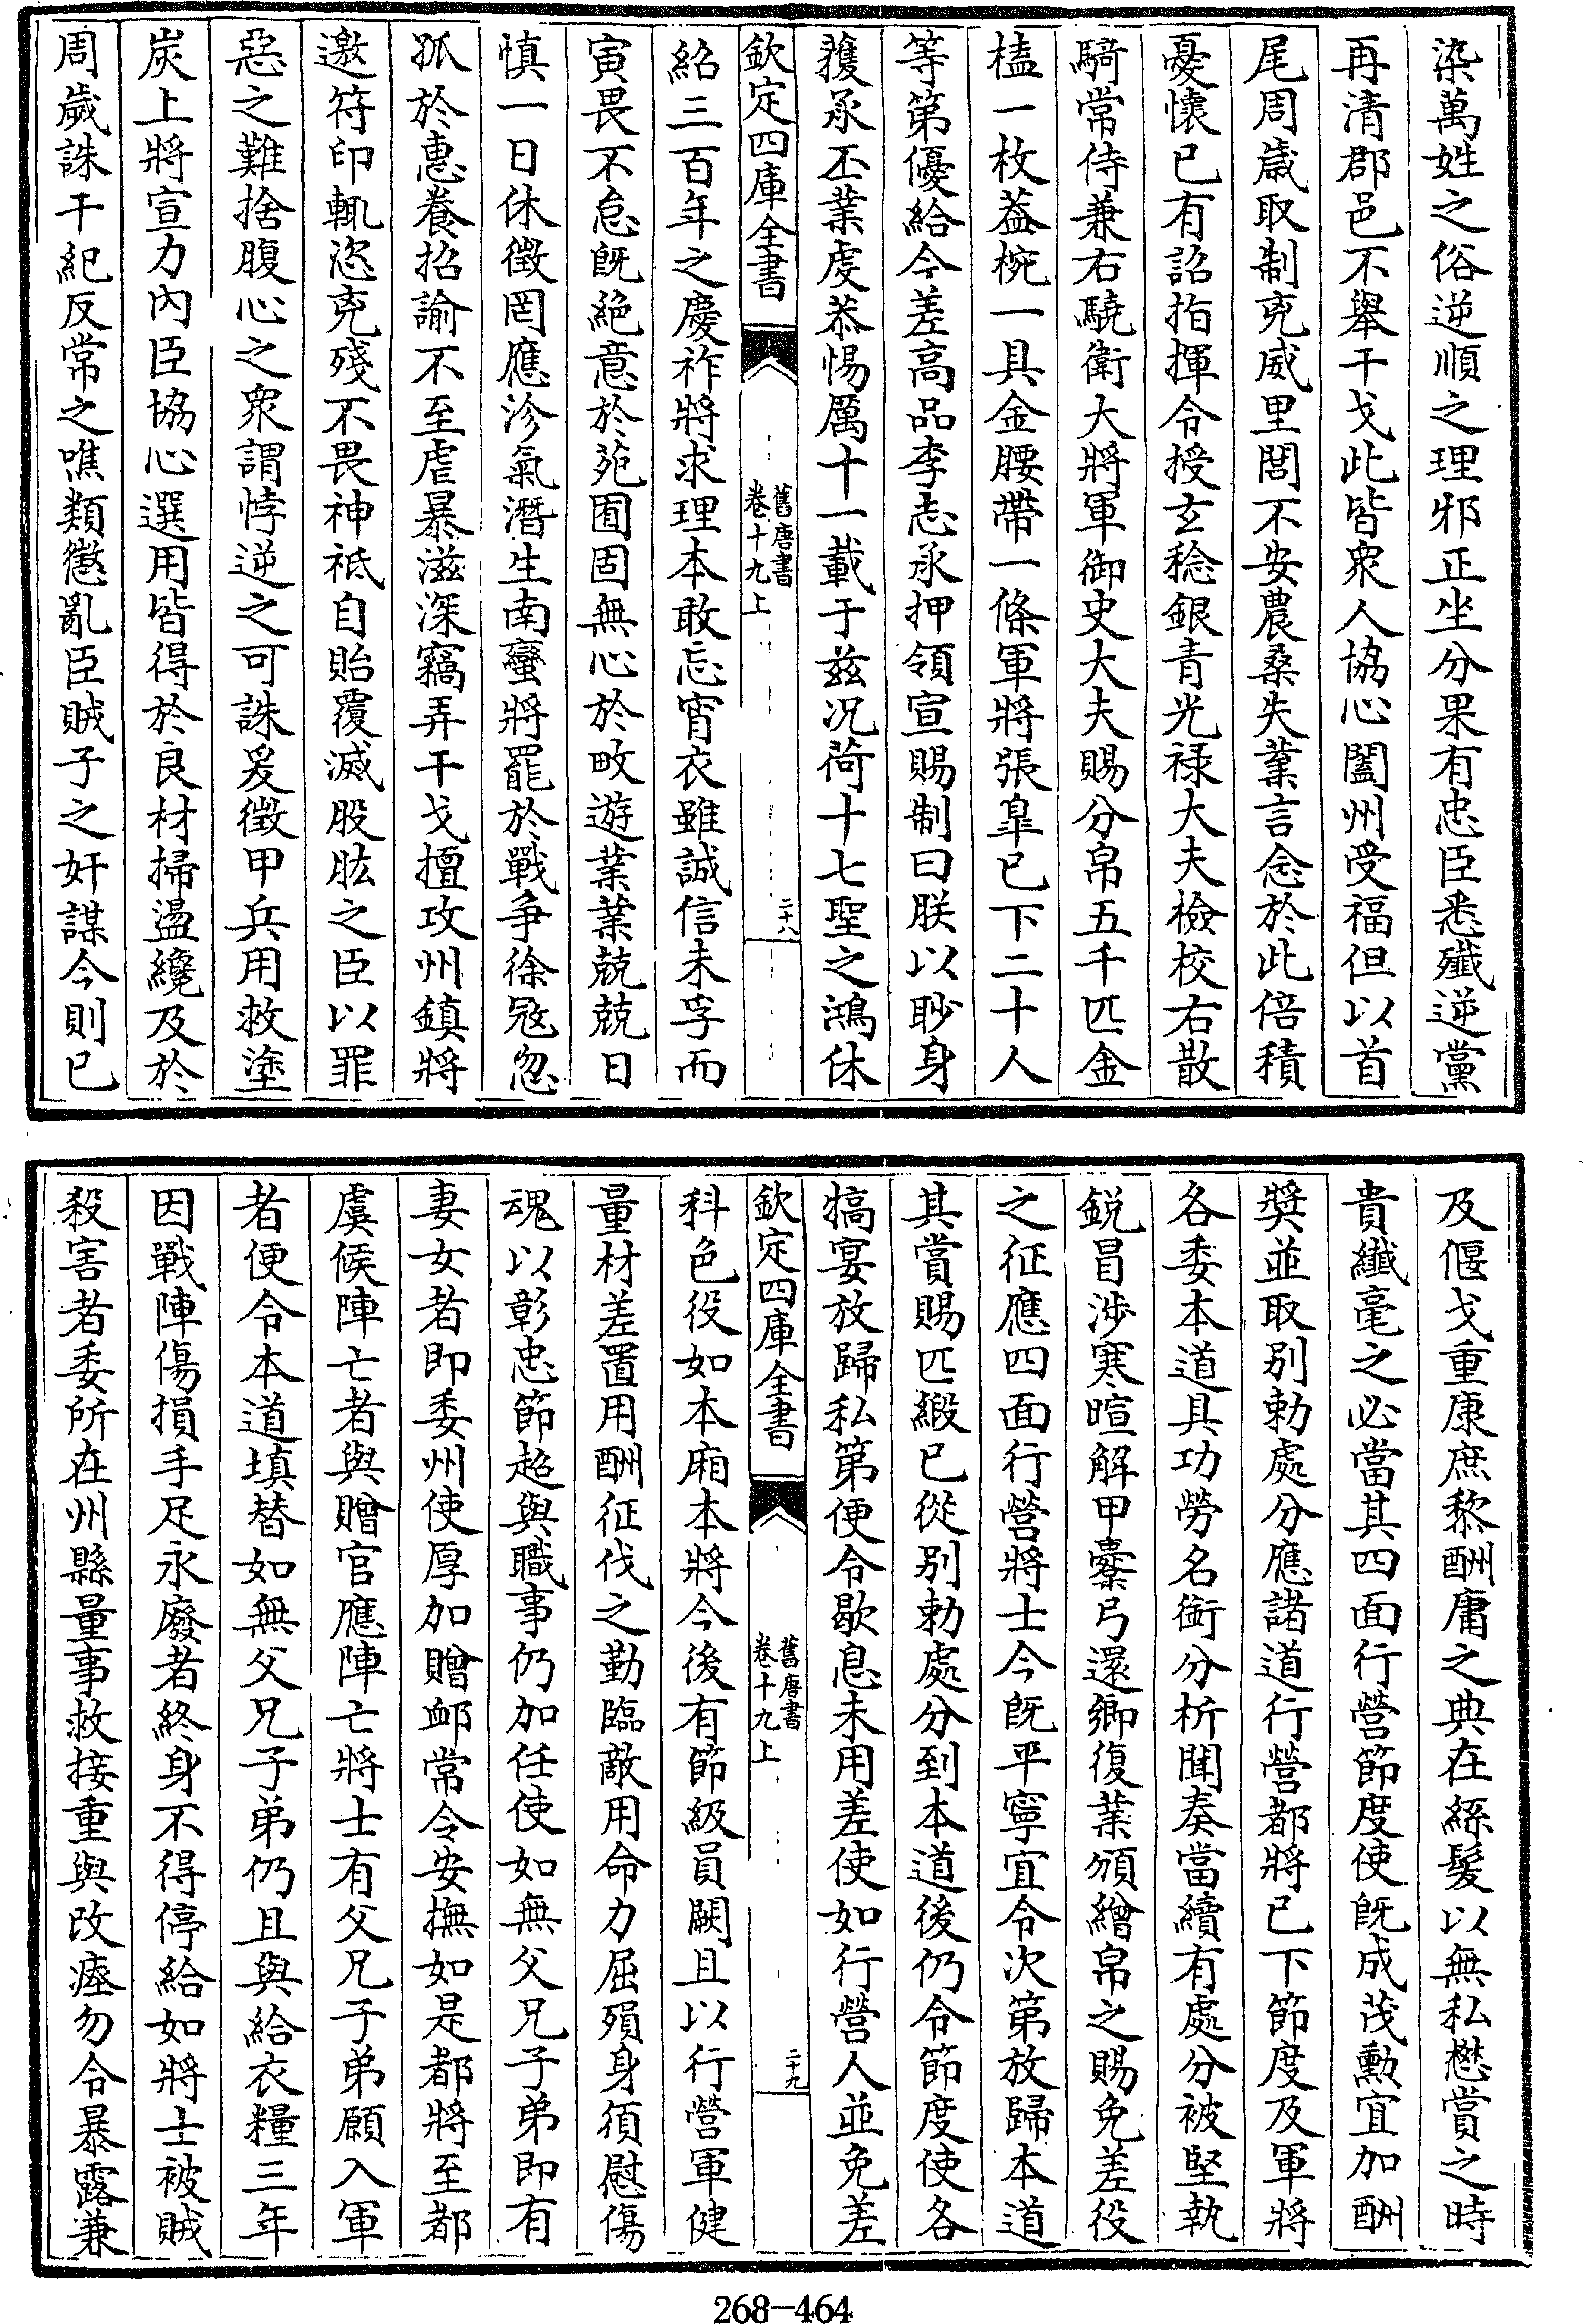 染萬姓之俗逆順之理邪正坐分果有忠臣悉殲逆黨
再清郡邑不舉干戈此皆衆人協心闔州受福但以首
尾周歲取制兇威里閭不安農桑失業言念於此倍積
憂懷已有詔指揮令授玄稔銀青光禄大夫檢校右散
騎常侍兼右驍衛大將軍御史大夫賜分帛五千匹金
榼一枚葢椀一具金腰帶一條軍將張臯已下二十人
等第優給今差髙品李志承押領宣賜制曰朕以眇身
獲承丕業虔恭惕厲十一載于兹况荷十七聖之鴻休
欽定四庫全書
舊唐書
卷十九上
二十八
紹三百年之慶祚將求理本敢忘宵衣雖誠信未孚而
寅畏不怠既絶意於苑囿固無心於畋遊業業兢兢日
慎一日休徵罔應沴氣潛生南蠻將罷於戰爭徐冦忽
孤於惠養招諭不至虐暴滋深竊弄干戈擅攻州鎮將
邀符印輒恣兇殘不畏神祗自貽覆滅股肱之臣以罪
惡之難捨腹心之衆謂悖逆之可誅爰徵甲兵用救塗
炭上將宣力内臣協心選用皆得於良材掃盪纔及於
周歲誅干紀反常之噍類懲亂臣賊子之奸謀今則已
及偃戈重康庶黎酬庸之典在絲髮以無私懋賞之時
貴纖毫之必當其四面行營節度使既成茂勲宜加酬
奬並取别勅處分應諸道行營都將已下節度及軍將
各委本道具功勞名銜分析聞奏當續有處分被堅執
鋭冒涉寒暄解甲櫜弓還鄉復業頒繒帛之賜免差役
之征應四面行營將士今既平寧宜令次第放歸本道
其賞賜匹緞已從别勅處分到本道後仍令節度使各
犒宴放歸私第便令歇息未用差使如行營人並免差
欽定四庫全書
舊唐書
卷十九上
二十九
科色役如本廂本將今後有節級員闕且以行營軍健
量材差置用酬征伐之勤臨敵用命力屈殞身須慰傷
魂以彰忠節超與職事仍加任使如無父兄子弟即有
妻女者即委州使厚加贈䘏常令安撫如是都將至都
虞候陣亡者與贈官應陣亡將士有父兄子弟願入軍
者便令本道填替如無父兄子弟仍且與給衣糧三年
因戰陣傷損手足永廢者終身不得停給如將士被賊
殺害者委所在州縣量事救接重與改瘞勿令暴露兼
268-464